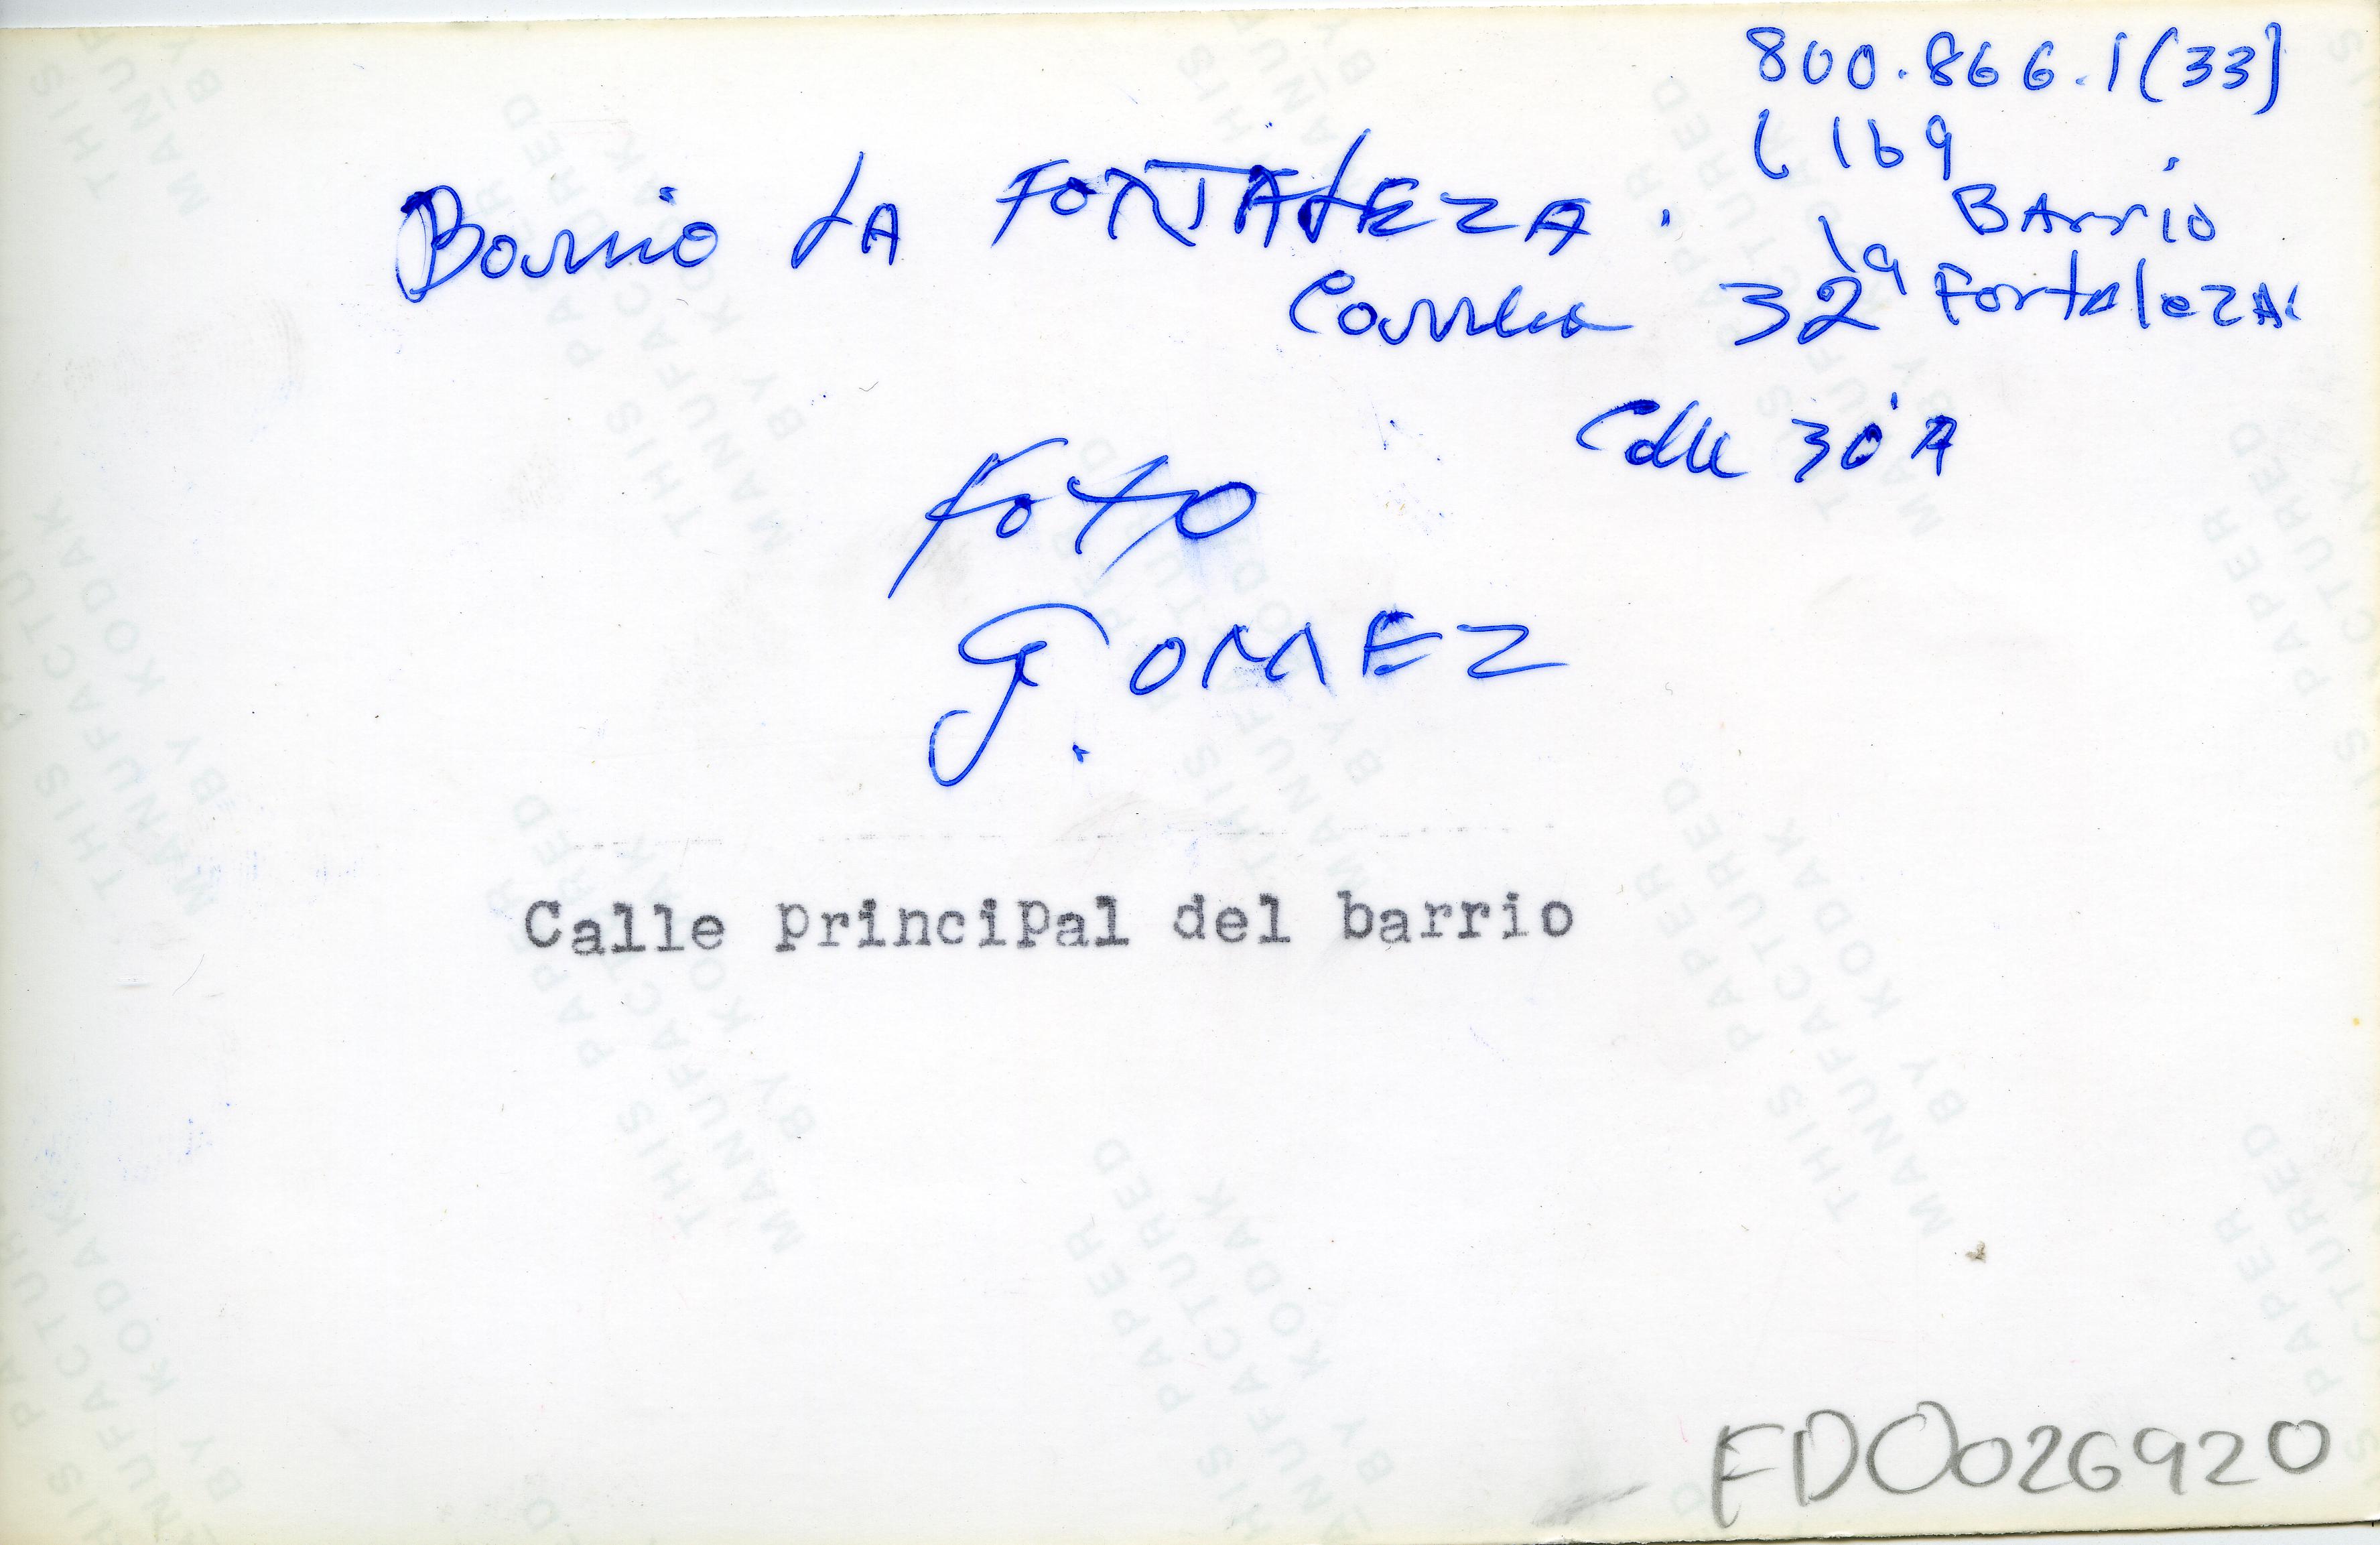 800.866.1(33)
L 169
Barrio
la Fortaleza.
Barrio LA FORTALEZA.
Carrera 32
Calle 30 A
Foto
GOMEZ
Calle principal del barrio
FDO026920
THIS PAPER
MANUFACTURED
BY KODAK